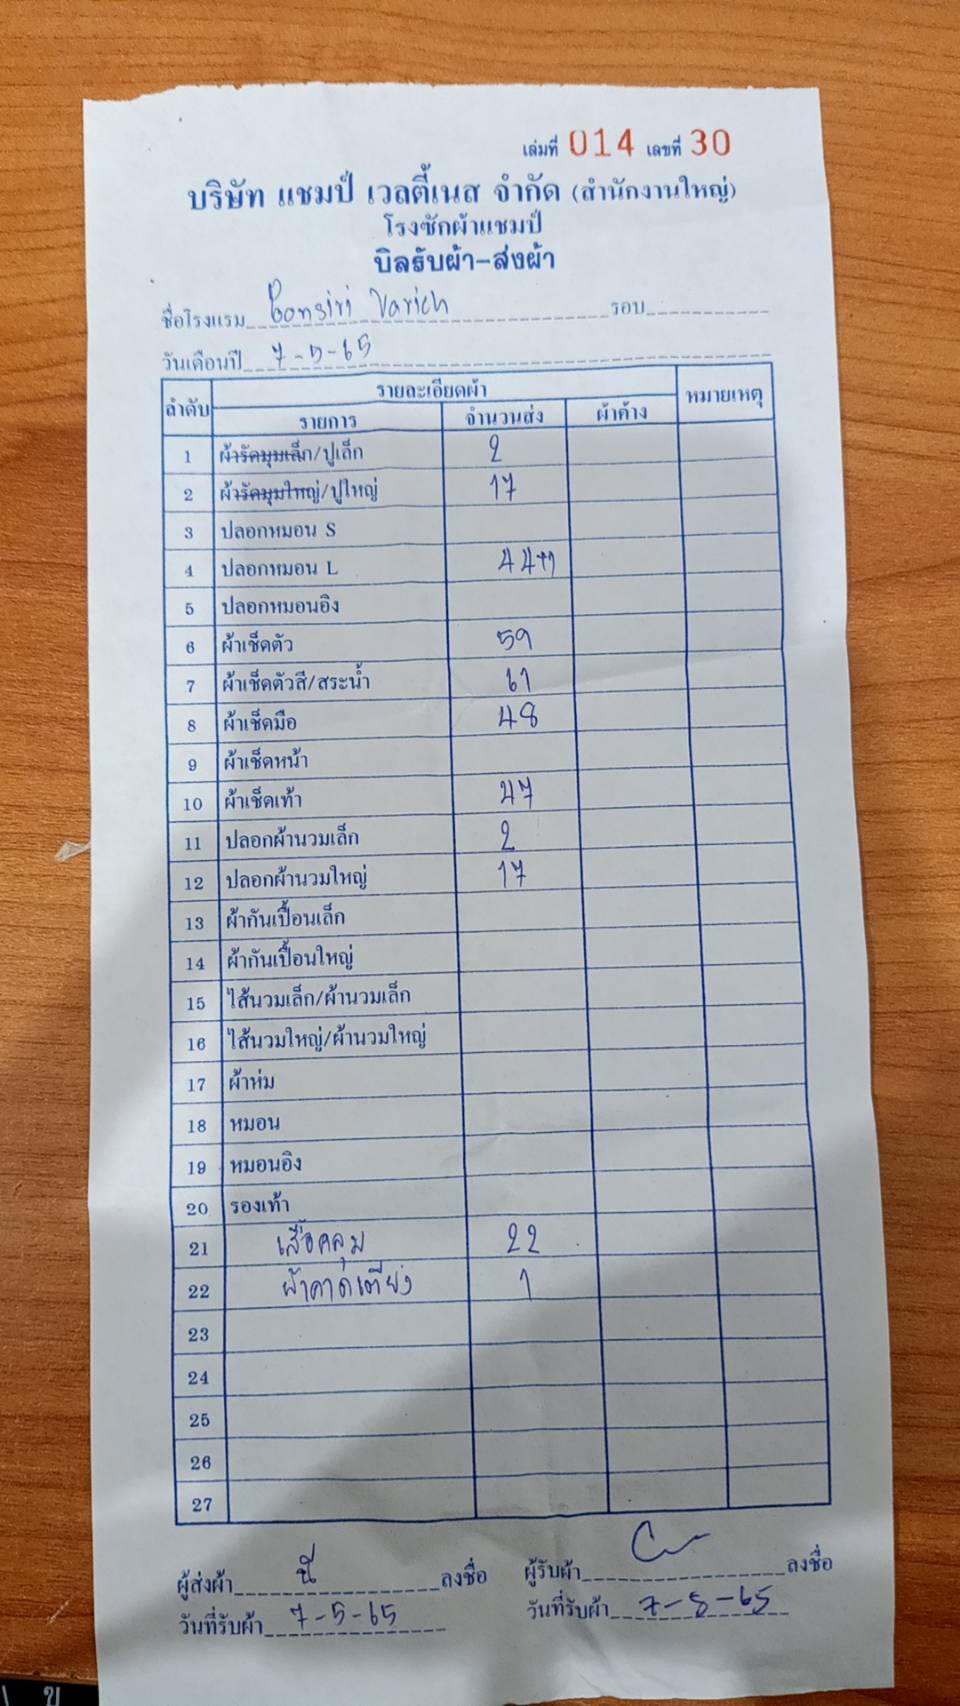 เล่มที่ 014 เลขที่ 30
บริษัท แชมป์ เวลตี้เนส จำกัด (สำนักงานใหญ่)
โรงซักผ้าแชมป์
บิลรับผ้า-ส่งผ้า
ชื่อโรงแรม Bonsiri Varich รอบ
วันเดือนปี 7-5-65
ลำดับ รายละเอียดผ้า หมายเหตุ
รายการ จำนวนส่ง ผ้าค้าง
1 ผ้ารัดมุมเล็ก/ปูเล็ก 2
2 ผ้ารัดมุมใหญ่/ปูใหญ่ 17
3 ปลอกหมอน S
4 ปลอกหมอน L 44
5 ปลอกหมอนอิง
6 ผ้าเช็ดตัว 59
7 ผ้าเช็ดตัวสี/สระน้ำ 61
8 ผ้าเช็ดมือ 48
9 ผ้าเช็ดหน้า
10 ผ้าเช็ดเท้า 47
11 ปลอกผ้านวมเล็ก 2
12 ปลอกผ้านวมใหญ่ 17
13 ผ้ากันเปื้อนเล็ก
14 ผ้ากันเปื้อนใหญ่
15 ไส้นวมเล็ก/ผ้านวมเล็ก
16 ไส้นวมใหญ่/ผ้านวมใหญ่
17 ผ้าห่ม
18 หมอน
19 หมอนอิง
20 รองเท้า
21 เสื้อคลุม 22
22 ผ้าคาดเตียง 1
23
24
25
26
27
ผู้ส่งผ้า ลงชื่อ ผู้รับผ้า ลงชื่อ
วันที่รับผ้า 7-5-65 วันที่รับผ้า 7-5-65